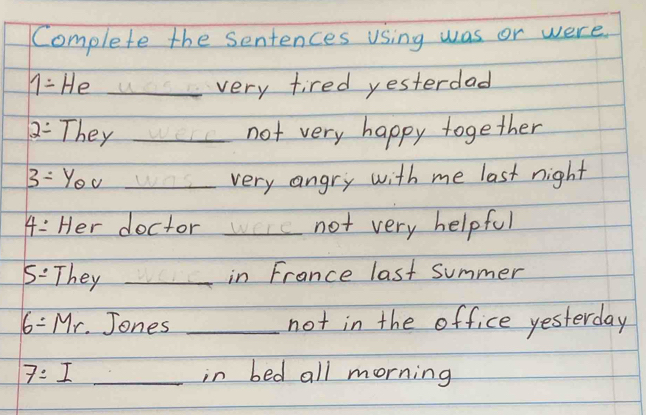 Complete the sentences using was or were.
1- He was very tired yesterdad
2- They were not very happy together
3- You was very angry with me last night
4- Her doctor were not very helpful
5- They were in France last summer
6- Mr. Jones ______ not in the office yesterday
7- I ______ in bed all morning